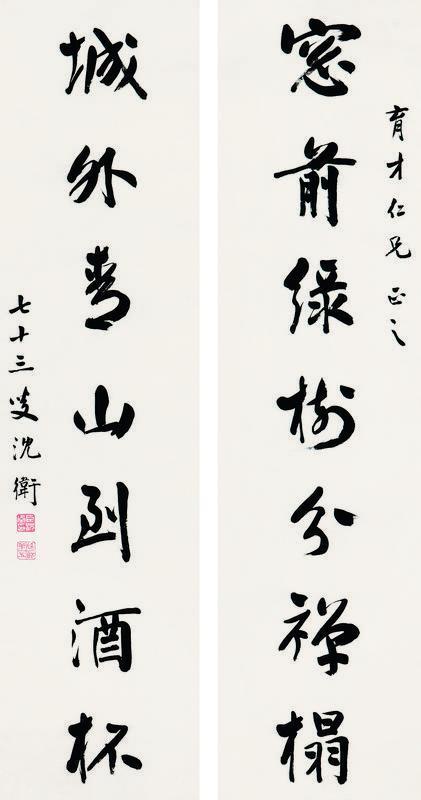 育才仁兄正之
窓前綠樹分禅榻
城外青山到酒杯
七十三叟沈衛